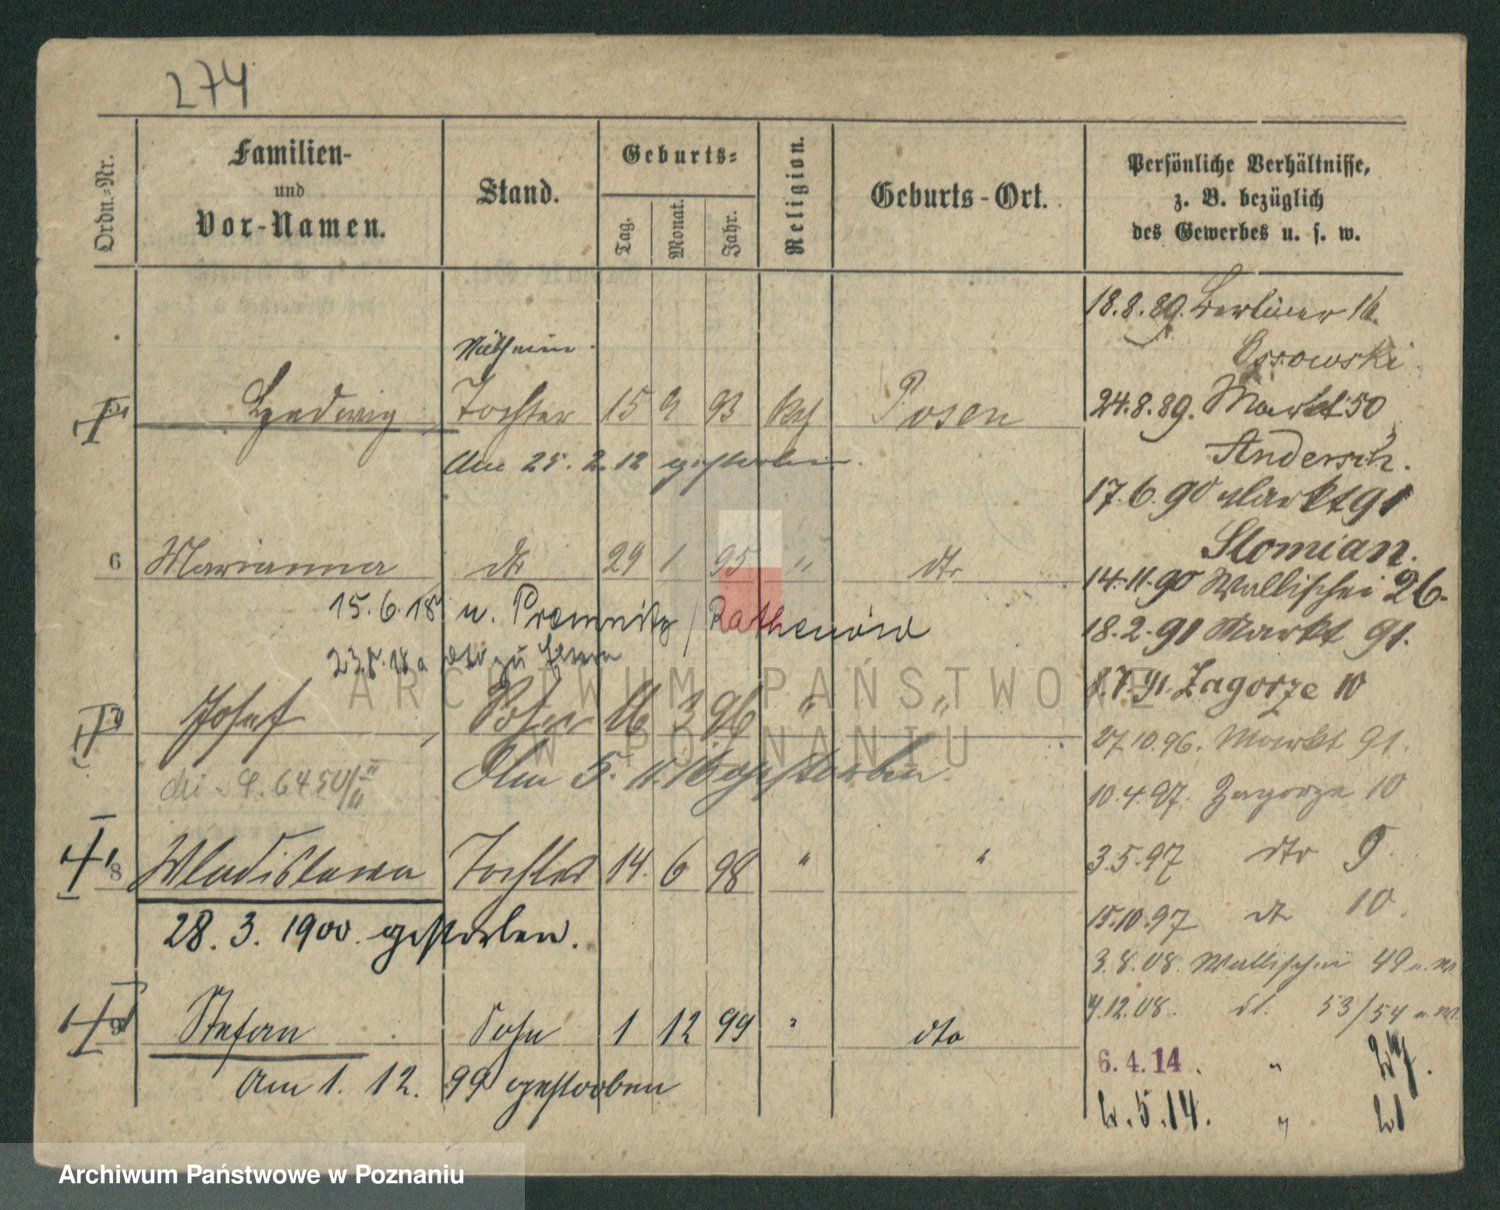 274
Ordn.-Nr.
Familien-
und
Vor-Namen.
Stand.
Geburts-
Tag.
Monat.
Jahr.
Religion.
Geburts-Ort.
Persönliche Verhältnisse,
z. B. bezüglich
des Gewerbes u. s. w.
18.8.89. Berliner 16.
Ossowski
5 Hedwig Tochter 15 9 93 kth Posen
24.8.89. Markt 50
Andersch.
Am 25.2.12 gestorben.
17.6.90 Markt 91
Slomian.
6 Marianna dto 29 1 95 " dto
14.11.90 Wallischei 26.
15.6.18 n. Premnitz / Rathenow
18.2.91 Markt 91.
8.7.91. Zagorze 10
7 Josef Sohn 16 3 96 " "
27.10.96. Markt 91.
Am 5. 11. 16 gestorben.
10.4.97. Zagorze 10
8 Wladislawa Tochter 14. 6 98 " "
3.5.97 dto 9.
28. 3. 1900. gestorben.
15.10.97 dto 10.
3.8.08. Wallischei 49
9 Stefan Sohn 1 12 99 " dto
4.12.08. dt. 53/54
Am 1. 12. 99 gestorben
6.4.14. "
5.14. "
ARCHIWUM PAŃSTWOWE
W POZNANIU
Archiwum Państwowe w Poznaniu